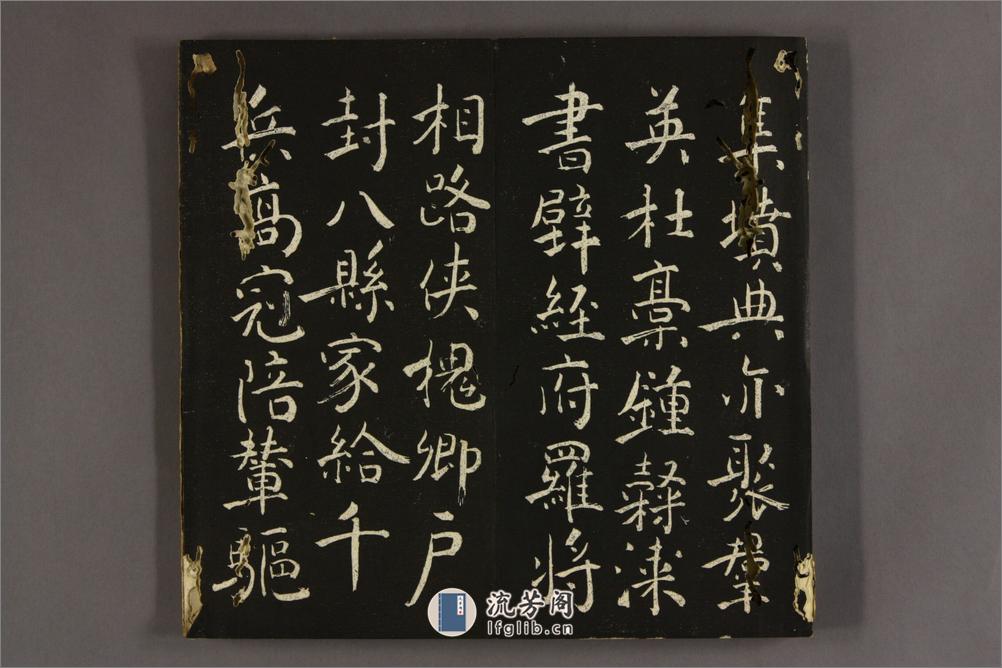 集墳典亦聚群
英杜稾鍾隸漆
書壁經府羅將
相路俠槐卿户
封八縣家給千
兵高冠陪輦驅
流芳阁
lfglib.cn